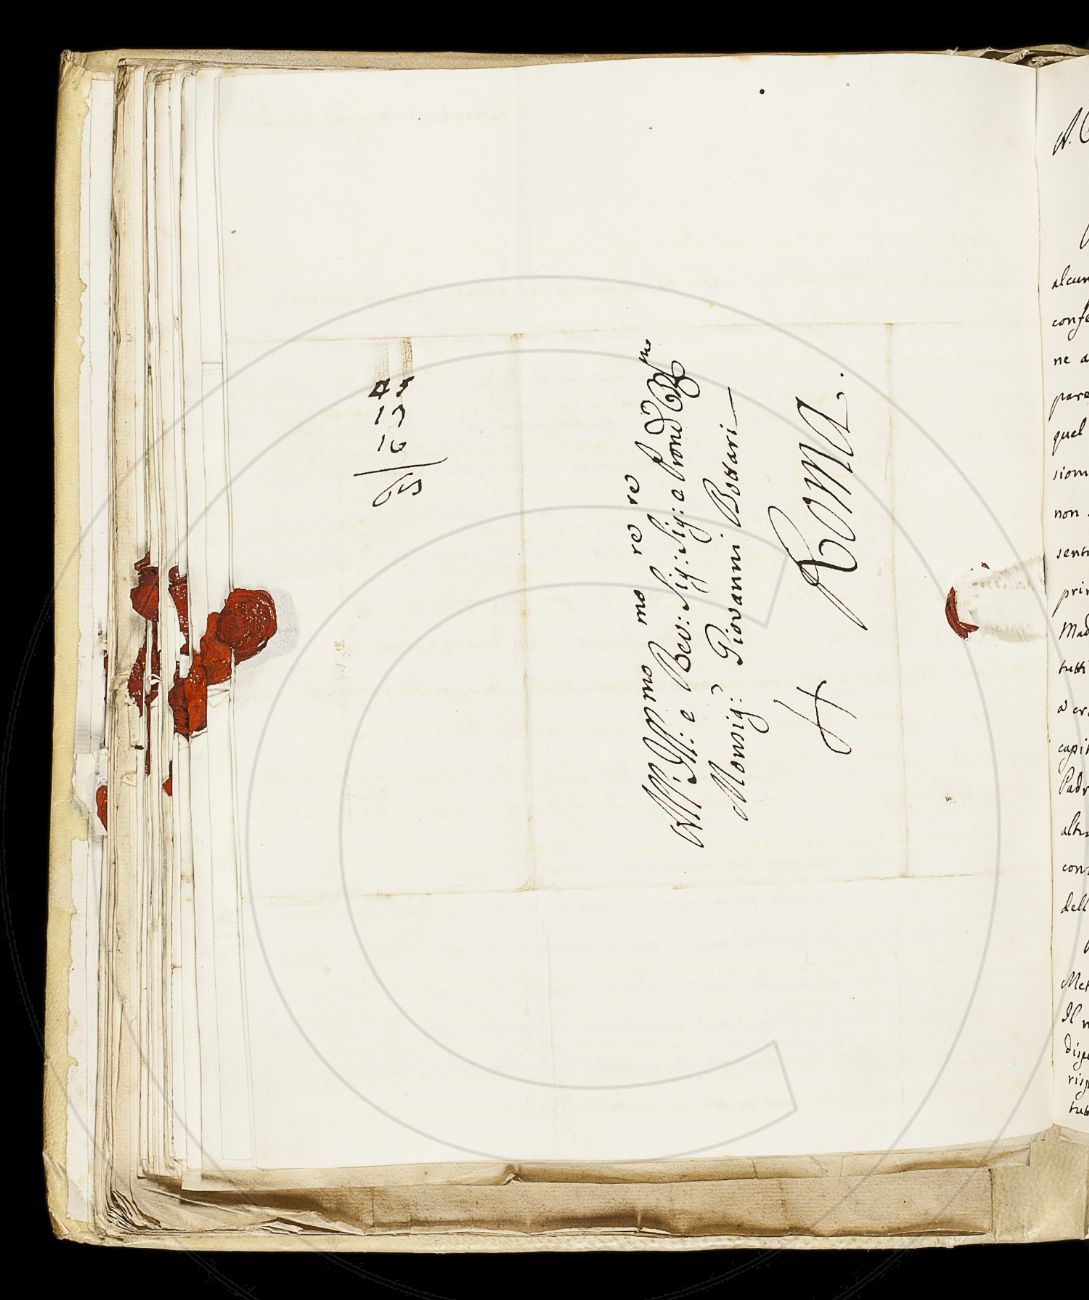 All' Ill:mo e Rev:mo Sig:re Sig:re e Pron Col:mo
Monsig: Giovanni Bottari
Roma.
17
16
alcun
confe
ne a
pare
quel
siom
non
sent
prin
Mad
tutti
capi
Padr
altr
cons
dell
Il n
disp
risp
tut